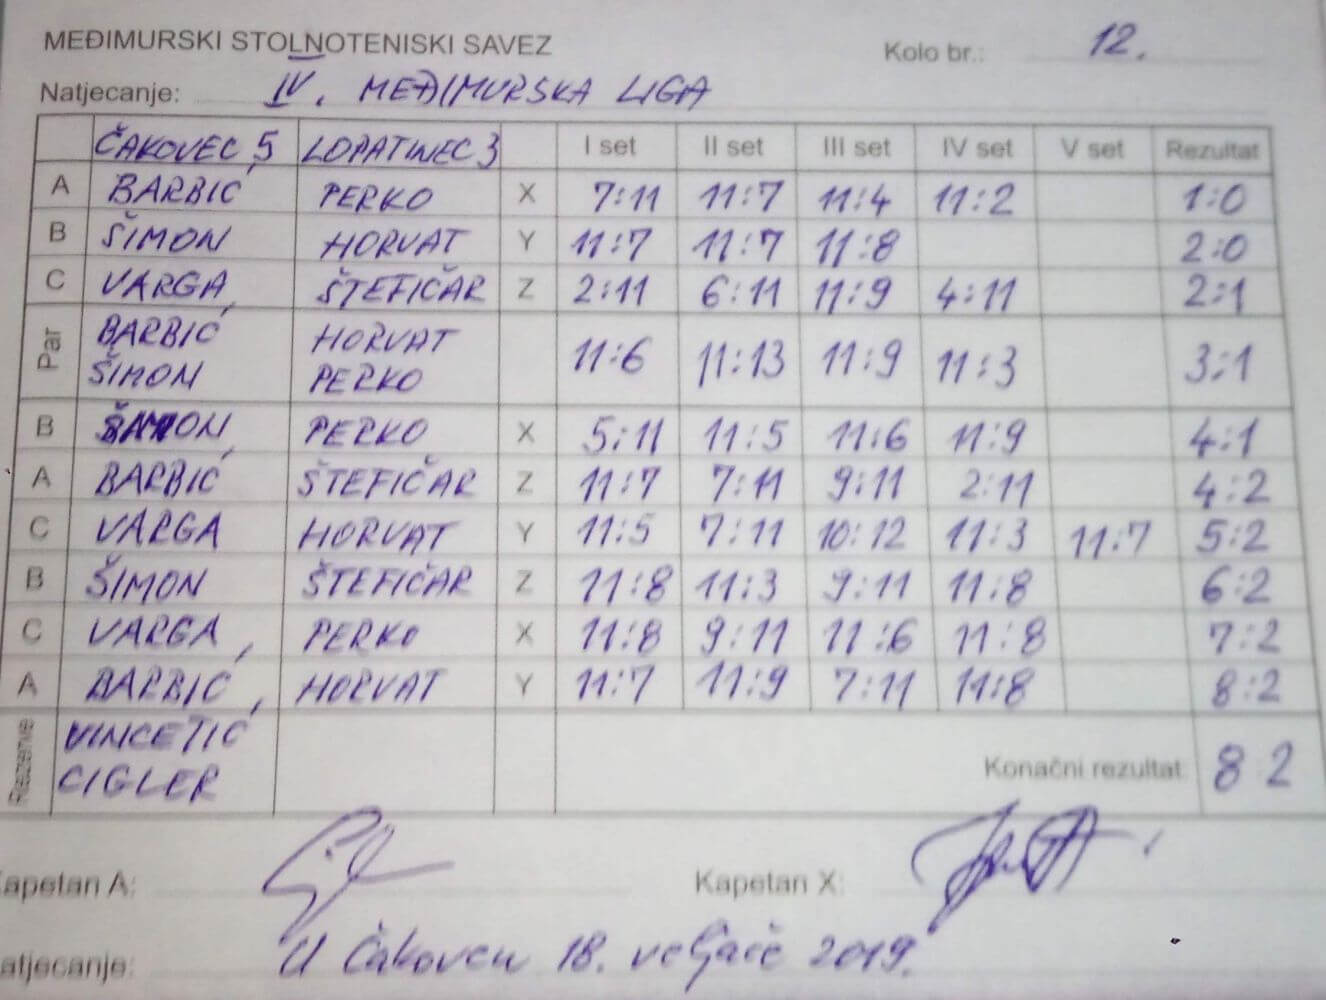 MEĐIMURSKI STOLNOTENISKI SAVEZ Kolo br.: 12.
Natjecanje: IV. MEĐIMURSKA LIGA
ČAKOVEC 5 LOPATINEC 3 I set II set III set IV set V set Rezultat
A BARBIĆ PERKO X 7:11 11:7 11:4 11:2 1:0
B ŠIMON HORVAT Y 11:7 11:7 11:8 2:0
C VARGA ŠTEFIČAR Z 2:11 6:11 11:9 4:11 2:1
Par BARBIĆ ŠIMON HORVAT PERKO 11:6 11:13 11:9 11:3 3:1
B ŠIMON PERKO X 5:11 11:5 11:6 11:9 4:1
A BARBIĆ ŠTEFIČAR Z 11:7 7:11 9:11 2:11 4:2
C VARGA HORVAT Y 11:5 7:11 10:12 11:3 11:7 5:2
B ŠIMON ŠTEFIČAR Z 11:8 11:3 9:11 11:8 6:2
C VARGA PERKO X 11:8 9:11 11:6 11:8 7:2
A BARBIĆ HORVAT Y 11:7 11:9 7:11 11:8 8:2
Rezerve VINCETIĆ
CIGLER Konačni rezultat 8 2
apetan A: Kapetan X:
atjecanje: U Čakovcu 18. veljače 2019.